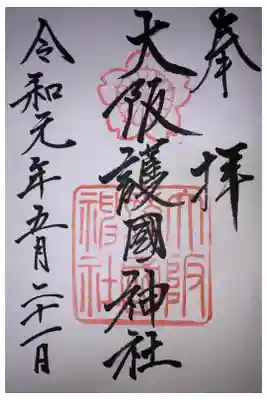 奉拝
大阪護國神社
令和元年五月二十一日
大阪
神社